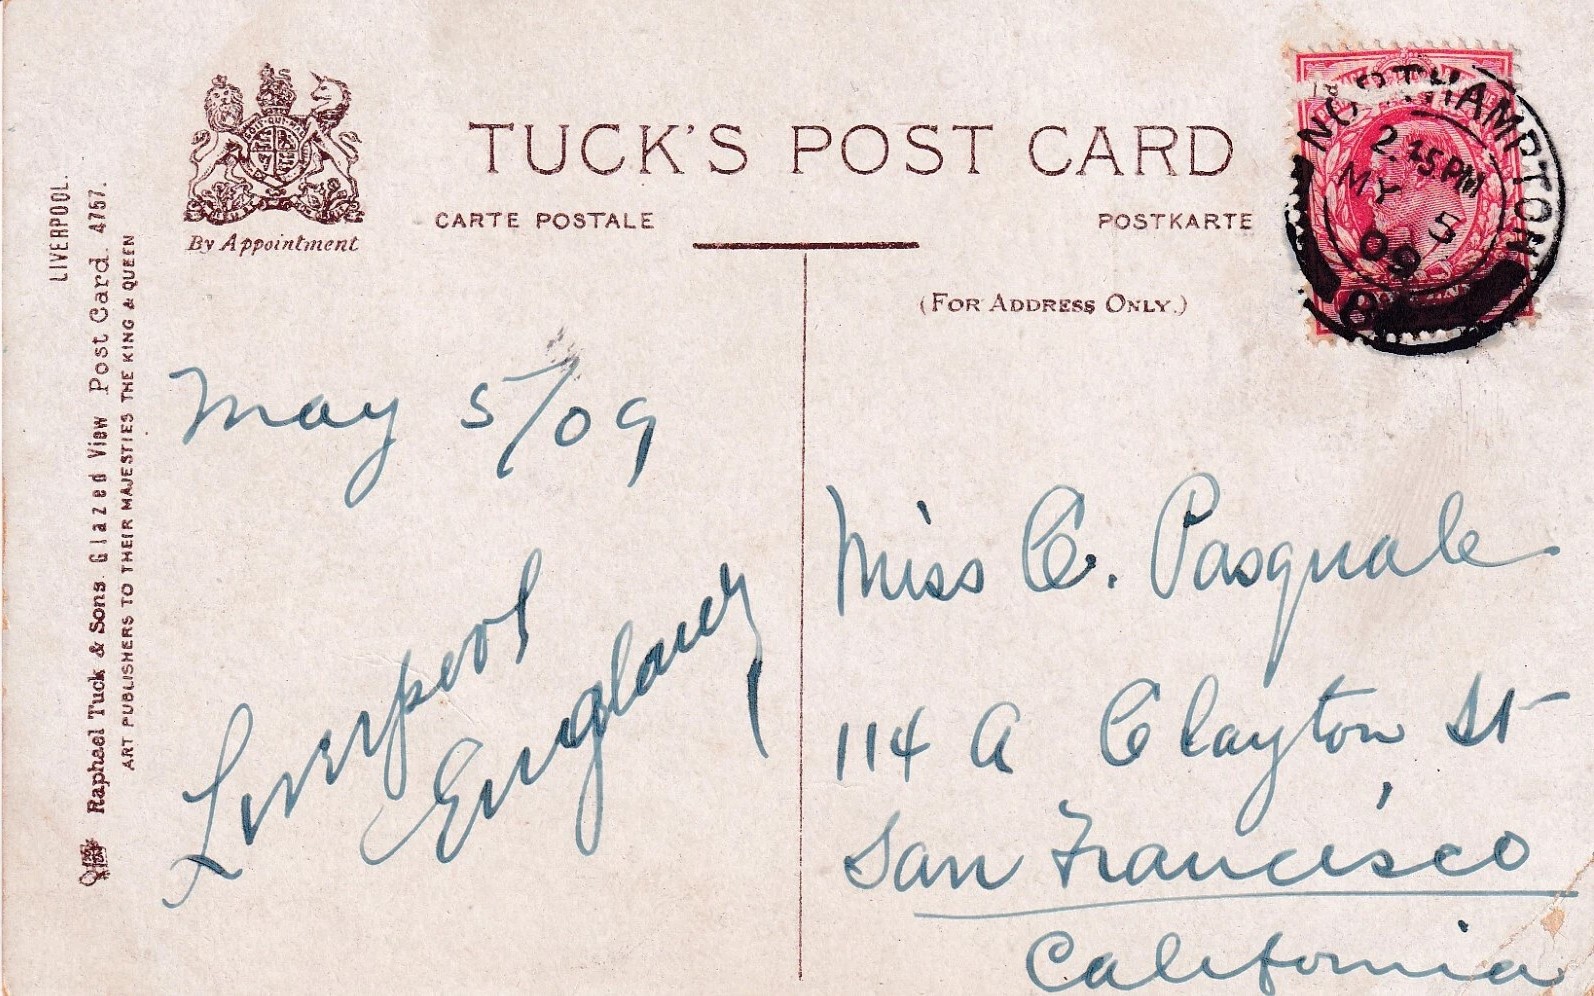 LIVERPOOL.
Raphael Tuck & Sons Glazed View Post Card. 4757.
ART PUBLISHERS TO THEIR MAJESTIES THE KING & QUEEN
By Appointment
TUCK'S POST CARD
CARTE POSTALE
POSTKARTE
(FOR ADDRESS ONLY.)
NORTHAMPTON
2.45 PM
MY 5
09
May 5/09
Liverpool
England
Miss C. Pasquale
114 A Clayton St
San Francisco
California